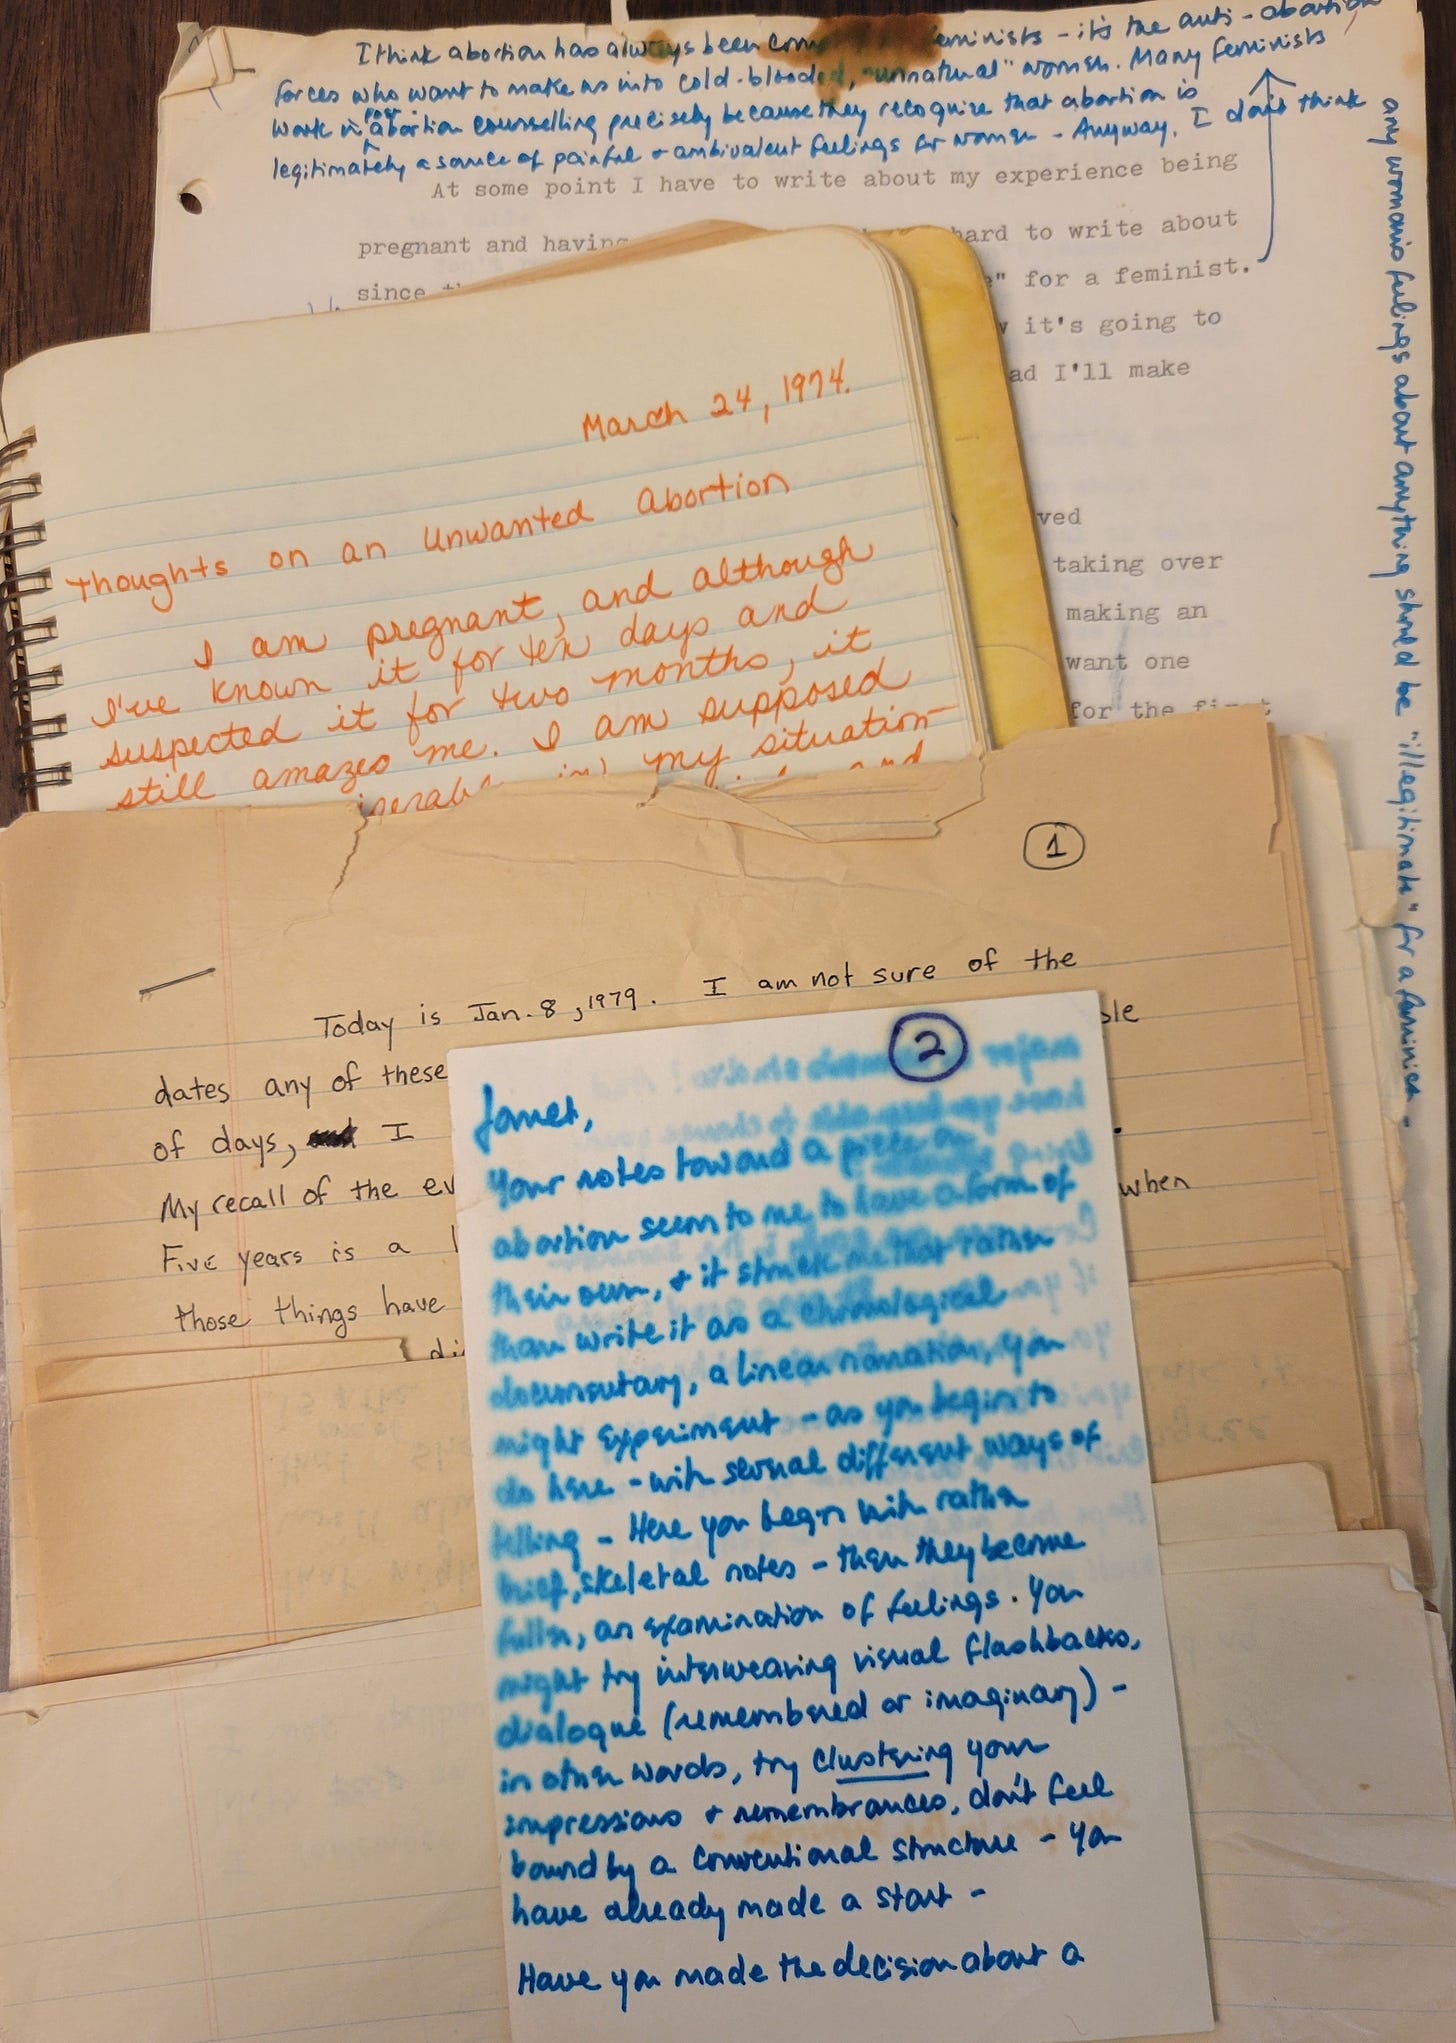 I think abortion has always been eminists - it's the anti-abortion
forces who want to make us into cold-blooded, "unnatural" women. Many feminists
work in abortion counselling precisely because they recognize that abortion is
legitimately a source of painful & ambivalent feelings for women - Anyway, I don't think
any woman's feelings about anything should be "illegitimate" for a feminist -
At some point I have to write about my experience being
pregnant and having hard to write about
since " for a feminist.
it's going to
ad I'll make
ved
taking over
making an
want one
for the first
March 24, 1974.
Thoughts on an Unwanted Abortion
I am pregnant, and although
I've known it for ten days and
suspected it for two months, it
still amazes me. I am supposed
my situation-
and
1
Today is Jan. 8, 1979. I am not sure of the
dates any of these
of days, I
My recall of the ev when
Five years is a l
those things have
di
2
Janet,
Your notes toward a piece on
abortion seem to me to have a form of
their own, & it struck me that rather
than write it as a chronological
documentary, a linear narration, you
might experiment - as you begin to
do here - with several different ways of
telling - Here you begin with rather
brief, skeletal notes - then they become
fuller, an examination of feelings. You
might try interweaving visual flashbacks,
dialogue (remembered or imaginary) -
in other words, try clustering your
impressions & remembrances, don't feel
bound by a conventional structure - you
have already made a start -
Have you made the decision about a